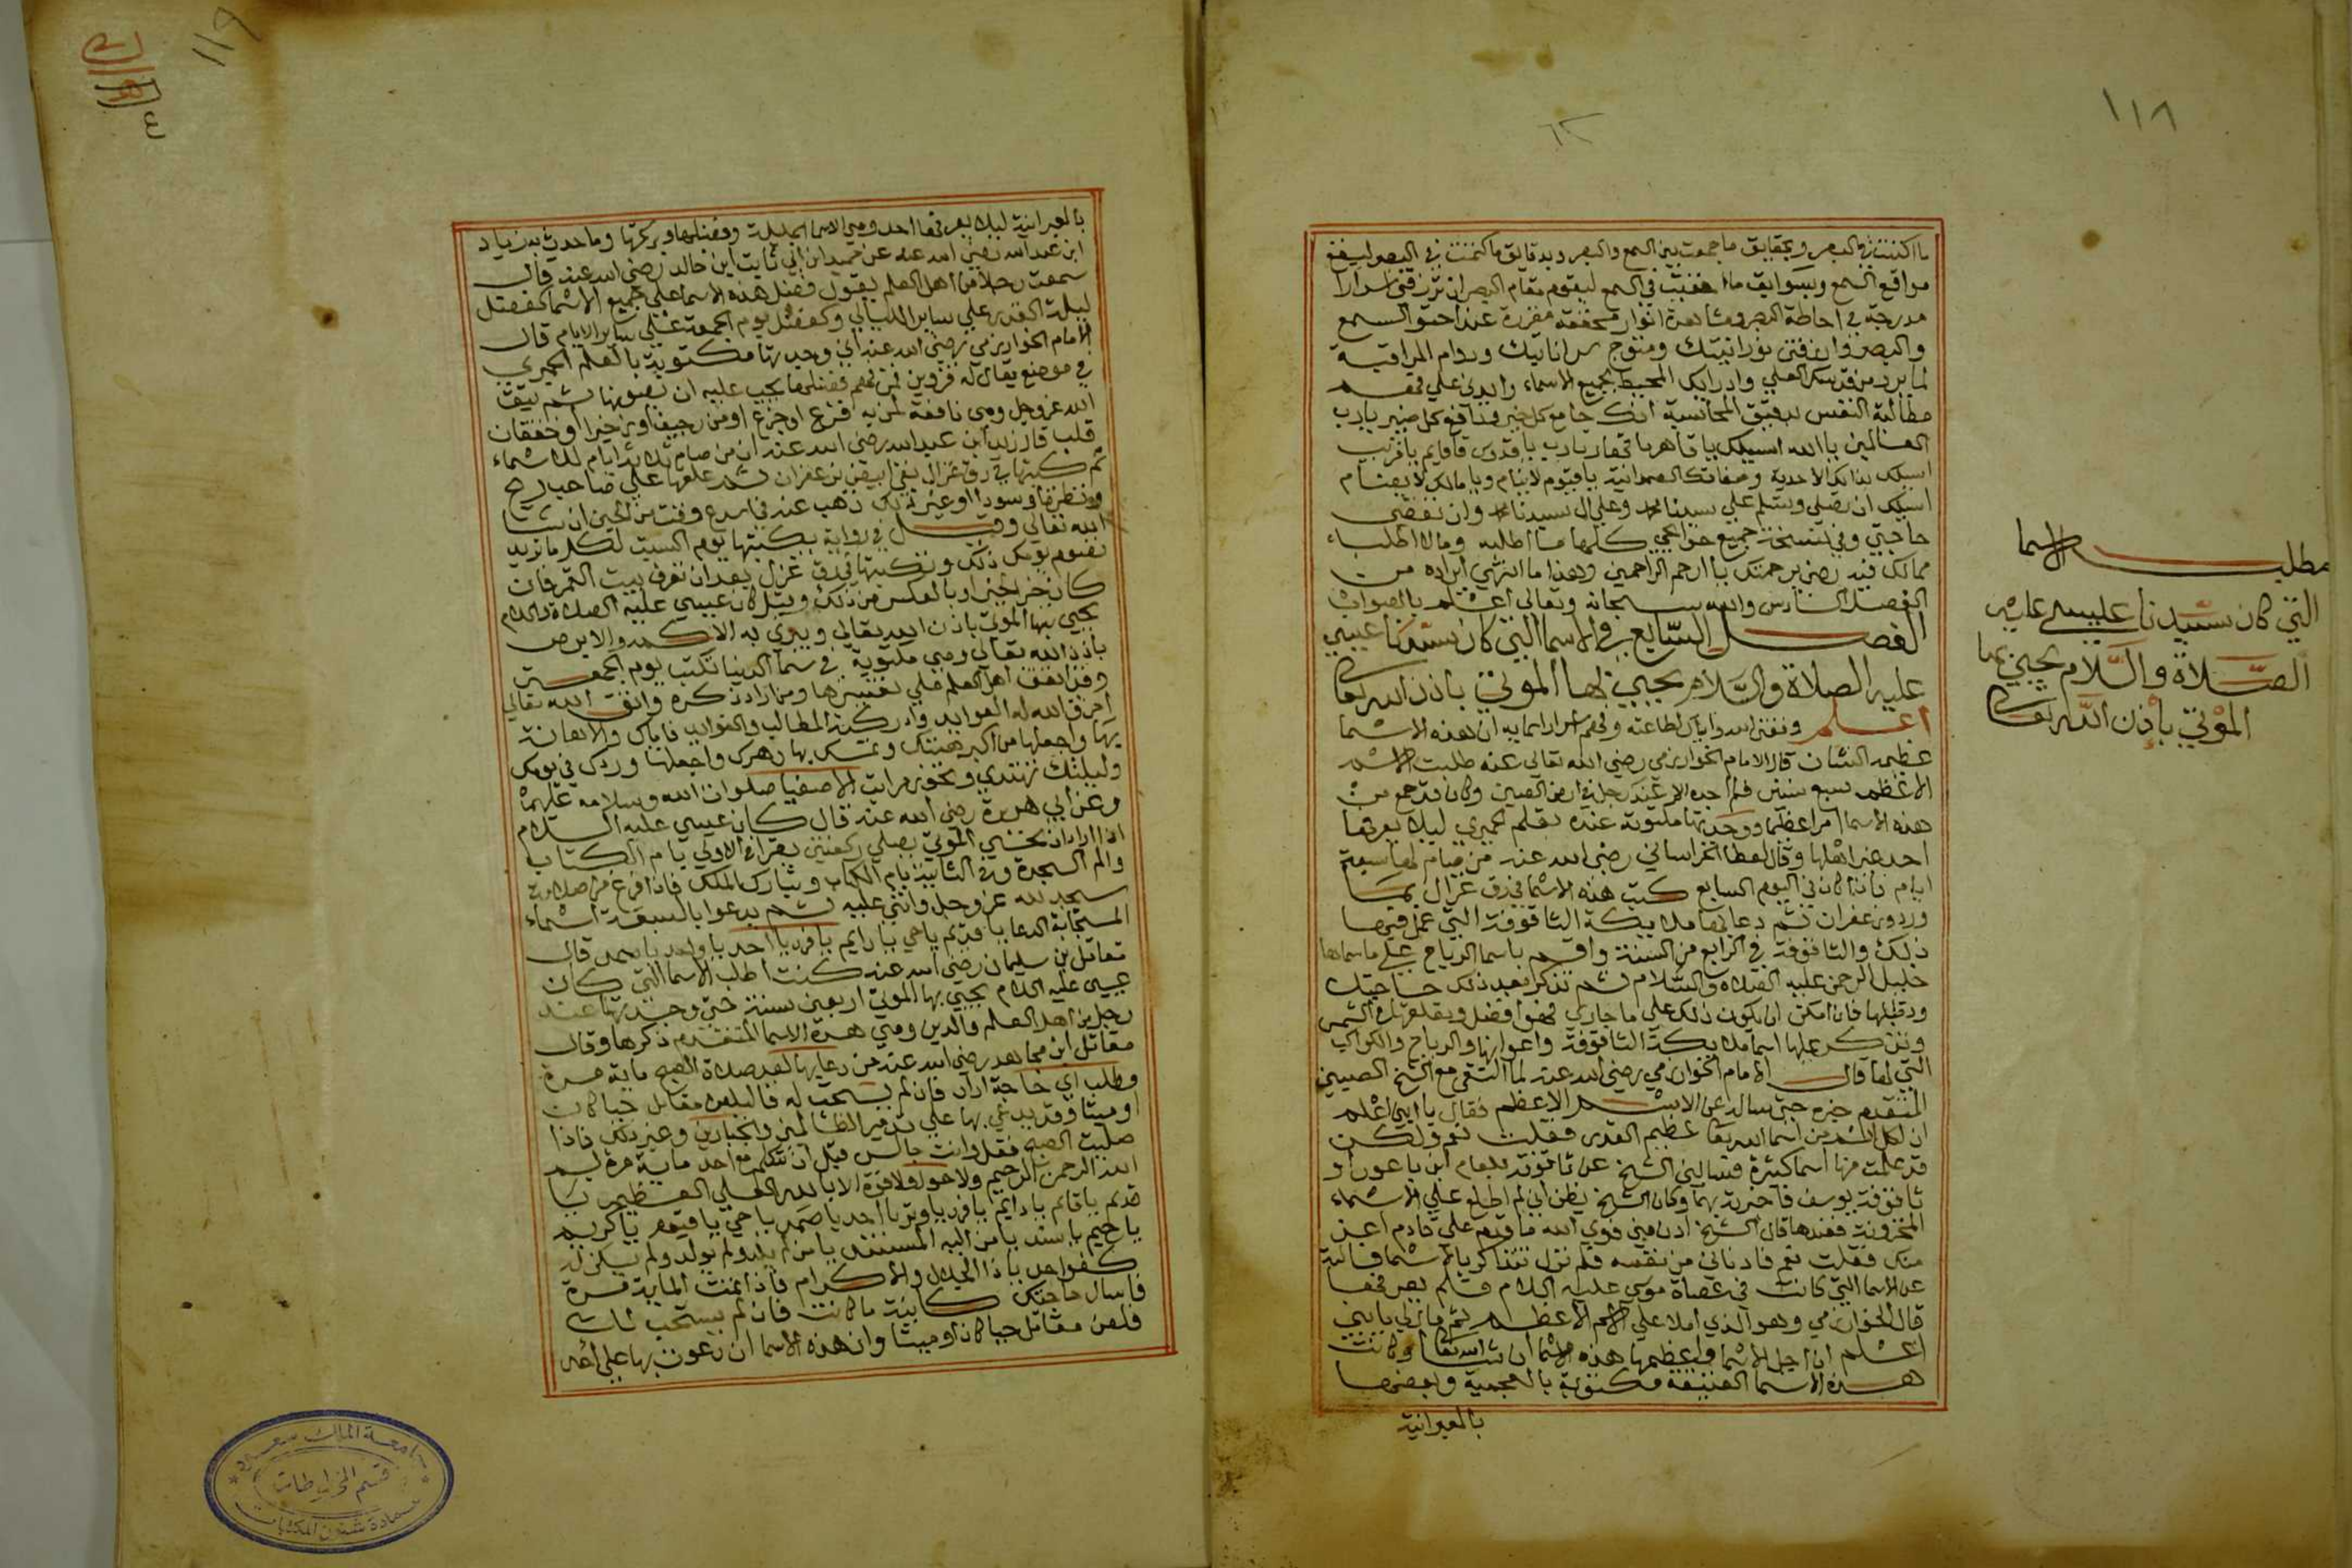 ١١٨
ما اكننته في البصر وبحقايق ما جمعت بين السمع والبصر وبدقايق ما كتمت في البصر ليقع
مواقع السمع وبسوابق ما اخفيت في السمع ليقوم مقام البصر ان ترزقني اسرارا
مدرجة في احاطة البصر ومشاهدة انوار محققة مقررة عن احق السمع
والبصر وارزقني نورانيتك ودوام المراقبة
لما يرد من قدسك العلي وادراك المحيط بجميع الاسماء وايدني علي
مطالبة النفس بدقيق المحاسبة انك جامع كل خير ودافع كل ضير يا رب
العالمين يا الله اسيلك يا قاهر يا قهار يا رب يا قدوس يا قايم يا قريب
اسيلك بذاتك الاحدية وصفاتك الصمدانية يا قيوم لا ينام ويا مالك لا يضام
اسيلك ان تصلي وتسلم علي سيدنا محمد وعلي ال سيدنا محمد وان تقضي
حاجتي وفي نسخة جميع حوايجي كلها ما اطلبه وما لا اطلبه
ممالك فيه رضي برحمتك يا ارحم الراحمين وهذا ما انتهي ايراده من
الفصل السادس والله سبحانه وتعالي اعلم بالصواب
الفصل السابع في الاسما التي كان سيدنا عيسي
عليه الصلاة والسلام يحيي بها الموتي باذن الله تعالي
اعلم وفقني الله واياك لطاعته وفهم اسرار اسمايه ان هذه الاسما
عظيمة الشان قال الامام الخوارزمي رضي الله تعالي عنه طلبت الاسم
الاعظم سبع سنين فلم اجده الا عند رجل في ارض الصين وكان قد جمع من
هذه الاسما امرا عظيما ووجدتها مكتوبة عنده بقلم الحميري ليلا يعرفها
احد غير اهلها وقال لعطا الخراساني رضي الله عنه من صام لها سبعة
ايام فاذا كان في اليوم السابع كتب هذه الاسما في رق غزال بمسك
وورد وزعفران ثم دعا بها ملايكة الثاقوفة التي عمل فيها
ذلك والثاقوفة في الرابع من السنة واقسم باسما الرياح علي ما سماها
خليل الرحمن عليه الصلاه والسلام ثم تذكر بعد ذلك حاجتك
وقبلها فان امكن ان يكون ذلك علي ما جاري فهو افضل
وتذكر عليها اسما ملايكة الثاقوفة واعوانها والرياح والكواكب
التي لها قال الامام الخوارزمي رضي الله عنه لما التقي مع الشيخ الصيني
المتقدم خبره حتي سالته عن الاسم الاعظم فقال يا بني اعلم
ان لكل اسم من اسما الله تعالي عظيم القدر فقلت نعم ولكن
قد علمت منها اسما كثيرة فسالني الشيخ عن ثاقوفة بلعام ابن باعورا و
ثاقوفة يوسف فاخبرته بهما وكان الشيخ يظن اني لم اطلع علي الاسماء
المخزونة فعندها قال الشيخ ادن مني فوالله ما قدم علي قادم اعز
منك فقلت نعم فادناني من نفسه فلم نزل نتذاكر بالاسما فسالته
عن الاسما التي كانت في عصاة موسي عليه السلام فلم يعرفها
قال الخوارزمي وهو الذي املا علي الاسم الاعظم ثم قال لي يا بني
اعلم ان اجل الاسما واعظمها هذه الاسما ان شا الله تعالي وكانت
هذه الاسما العتيقة مكتوبة بالعجمية وبعضها
بالعبرانية
مطلب الاسما
التي كان سيدنا عليسي عليه
الصلاة والسلام يحيي بها
الموتي باذن الله تعالي
١١٩
بالعبرانية ليلا يعرفها احد وهي الاسما الجليلة وفضلها وبركتها وما حدث به زياد
ابن عبد الله رضي الله عنه عن حميد ابن ابي ثابت ابن خالد رضي الله عنه قال
سمعت رجلا من اهل العلم يقول فضل هذه الاسما علي جميع الاسما كفضل
ليلة القدر علي ساير الليالي وكفضل يوم الجمعة علي ساير الايام قال
الامام الخوارزمي رضي الله عنه اني وجدتها مكتوبة بالقلم الحميري
في موضع يقال له قزوين فمن فهم فضلها يجب عليه ان يصونها ثم يتق
الله عز وجل وهي نافعة لمن به افزع او جزع او من رجيف او خفقان
قلب قال زيد ابن عبد الله رضي الله عنه ان من صام ثلاثة ايام للاسماء
ثم كتبها في رق غزال نقي ابيض بزعفران ثم علقها علي صاحب ريح
او نظرة او سودا او غير ذلك ذهب عنه في اسرع وقت من الحين ان شا
الله تعالي وقيل في رواية يكتبها يوم السبت لكل ما تريد
تصوم يومك ذلك وتكتبها في رق غزل بعد ان تعرف بيت القمر فان
كان خيرا لخير او بالعكس من ذلك وقيل كان عيسي عليه الصلاة والسلام
يحيي بها الموتي باذن الله تعالي ويبري به الاكمه والابرص
باذن الله تعالي وهي مكتوبة في سما الدينا تكتب يوم الجمعة
وقد اتفق اهل العلم علي تفسيرها ومما زاد ذكره وافق الله تعالي
اخرق الله له العوايد وادركته المطالب والفوايد فاياك والاهانة
بها واجعلها من اكبر همتك وتمسك بها دهرك واجعلها وردك في يومك
وليلتك تهتدي وتحوز مراتب الاصفيا صلوات الله وسلامه عليهم
وعن ابي هريرة رضي الله عنه قال كان عيسي عليه السلام
اذا اراد ان يحيي الموتي يصلي ركعتين يقرا في الاولي بام الكتاب
والم السجدة وفي الثانية بام الكتاب وتبارك الملك فاذا فرغ من صلاته
سجد لله عز وجل واثني عليه ثم يدعوا بالسبعة اسماء
المستجابة الدعا يا قديم يا حي يا دايم يا فرد يا احد يا واحد يا صمد قال
مقاتل بن سليمان رضي الله عنه كنت اطلب الاسما التي كان
عيسي عليه السلام يحيي بها الموتي اربعين سنة حتي وجدتها عند
رجل من اهل العلم والدين وهي هذه الاسما المتقدم ذكرها وقال
مقاتل ابن مجاهد رضي الله عنه من دعا بها بعد صلاة الصبح ماية مرة
وطلب اي حاجة اراد فان لم يستجب له فاليلعن مقاتل حيا كان
او ميتا وقد يدعي بها علي تدمير الظالمين والجبارين وغير ذلك فاذا
صليت الصبح فقل وانت جالس قبل ان تتكلم مع احد ماية مرة بسم
الله الرحمن الرحيم ولا حول ولا قوة الا بالله العلي العظيم يا
قديم يا قايم يا دايم يا فرد يا وتر يا احد يا صمد يا حي يا قيوم يا كريم
يا رحيم يا سند يا من اليه المستند يا من لم يلد ولم يولد ولم يكن له
كفوا احد يا ذا الجلال والاكرام فاذا اتمت الماية مرة
فاسال حاجتك كاينة ما كانت فان لم يستجب لك
فلعن مقاتل حيا كان او ميتا وان هذه الاسما ان دعوت بها علي احد
جامعة الملك سعود
قسم المخطوطات
عمادة شئون المكتبات